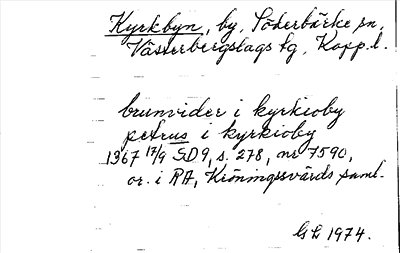 Kyrkbyn, by, Söderbärke sn,
Västerbergslags tg, Kopp.l.
brunvider i kyrkioby
petrus i kyrkioby
1367 17/9 SD9, s. 278, nr 7590,
or. i RA, Kröningssvärds saml.
GL 1974.